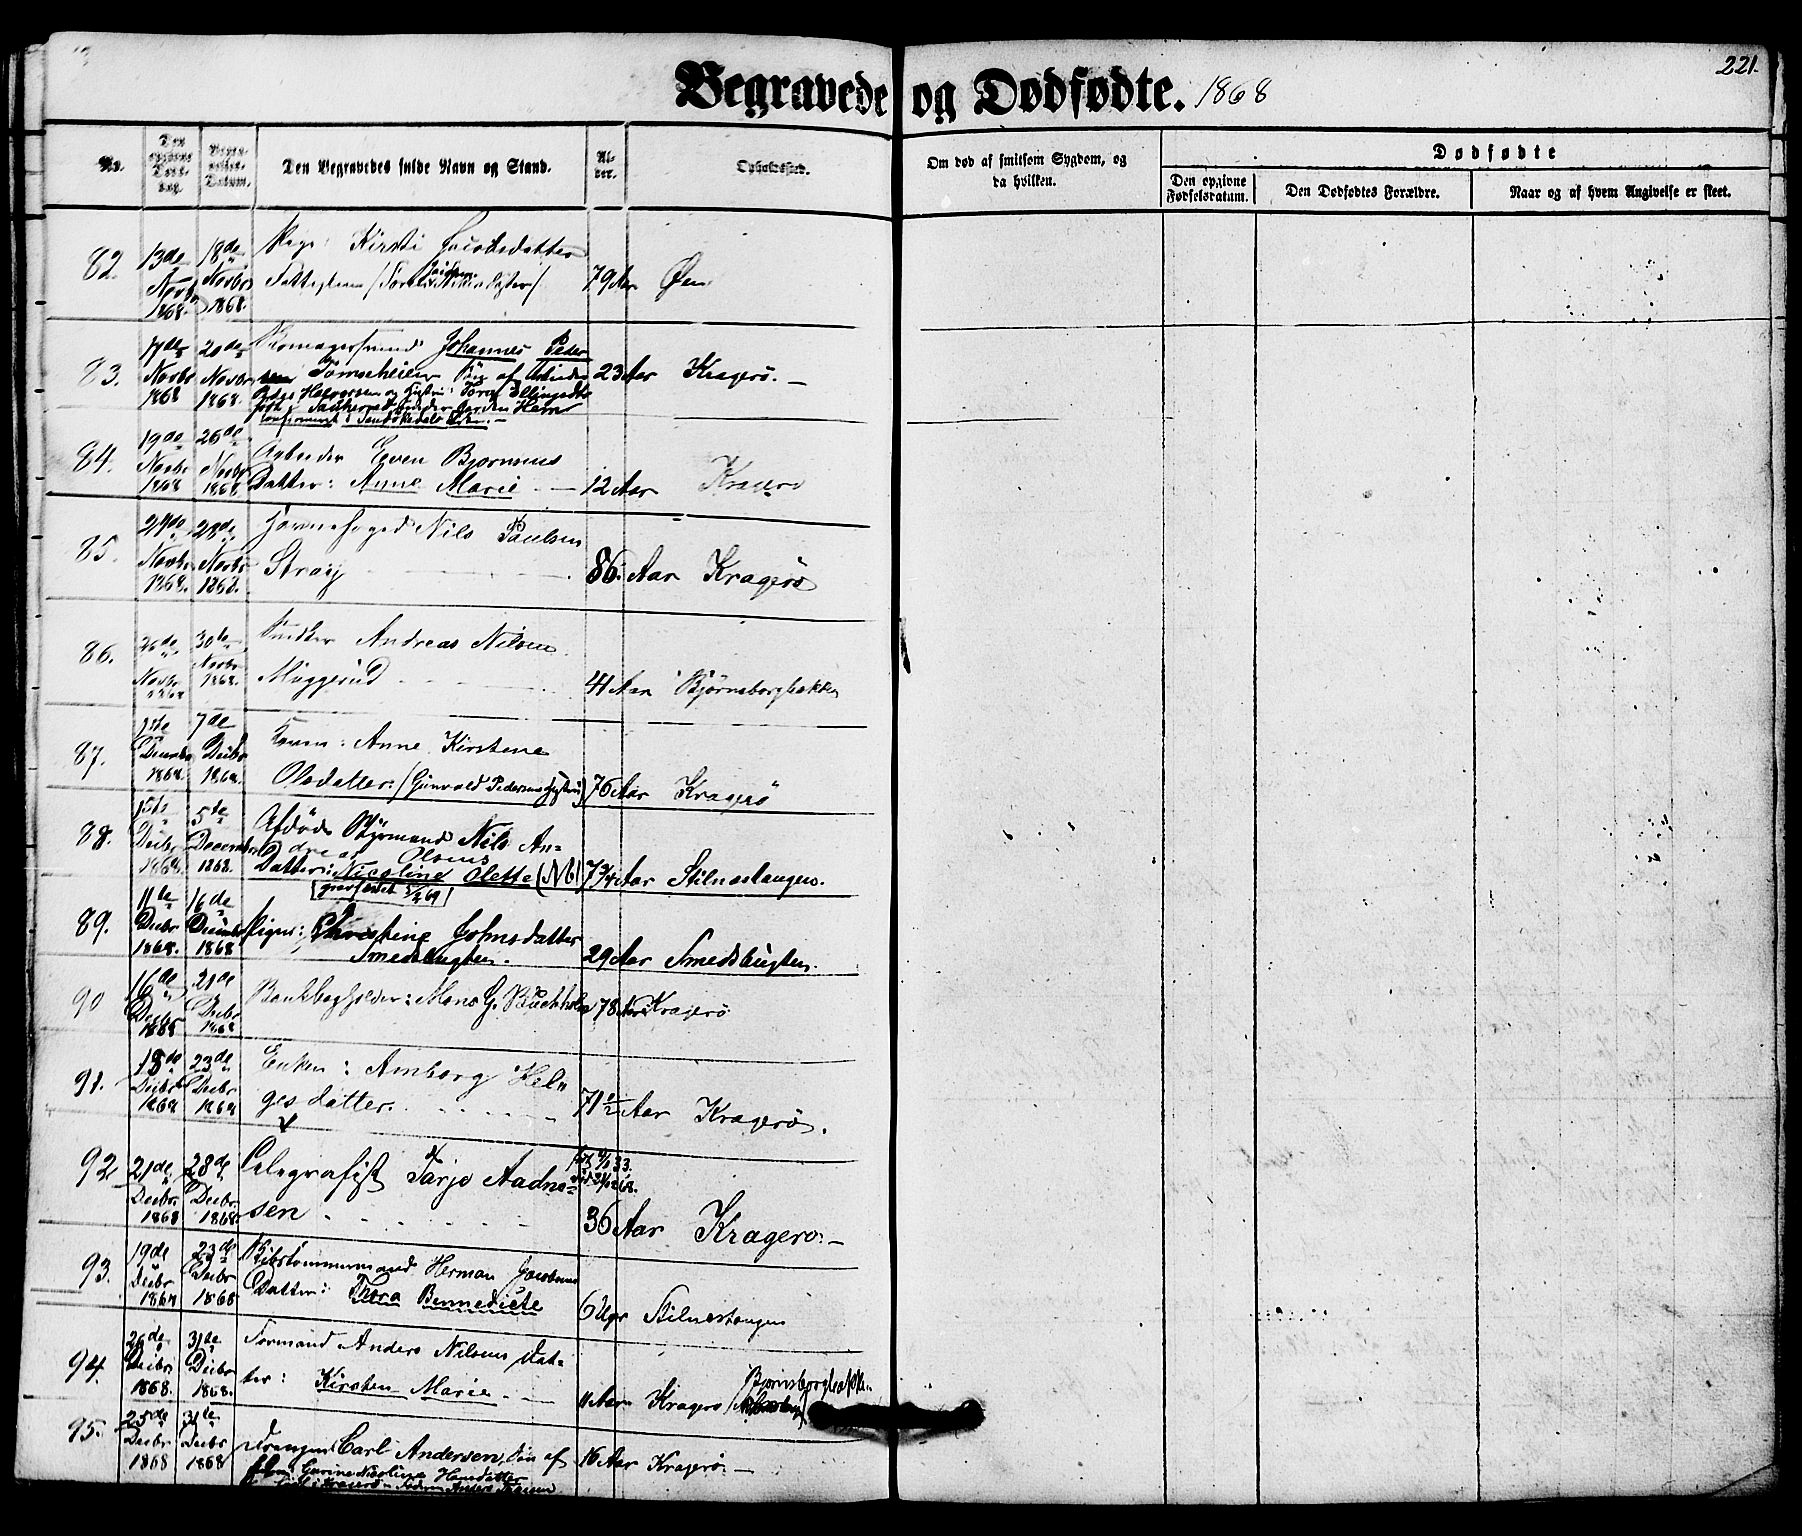 221.
Begravede og Dødfødte. 1868
No.
Den opgivne Døds-dag.
Begra-velses-Datum.
Den Begravedes fulde Navn og Stand.
Al-der.
Opholdssted.
Om død af smitsom Sygdom, og da hvilken.
Dødfødte
Den opgivne Fødselsdatum.
Den Dødfødtes Forældre.
Naar og af hvem Angivelse er skeet.
82. 13de Novbr 1868. 18de Novbr 1868. Kirsti Jacobsdatter
79 Aar Øen
83. 17de Novbr 1868 20de Novbr 1868. Johannes Peder
sen Tømscheien Søn af Arbeider 23 Aar Kragerø. —
Halvorsen og Hustru: Tora Ellingsdtr
84. 19de Novbr 1868 26de Novbr 1868. Arbeider Even Bjørnsens
Datter: Anne Marie — 12 Aar Kragerø
85. 24de Novbr 1868. 28de Novbr 1868. Havnefoged Nils Paulsen
Stray 86 Aar Kragerø
86. 26de Novbr 1868 30te Novbr 1868. Snedker Andreas Nilsen
Muggerud 41 Aar Bjørnsborgbakken
87. 1ste Decembr 1868. 7de Decbr 1868. Konen: Anne Kirstine
Olsdatter (Gunvald Pedersens Hustru) 76 Aar Kragerø
88. 1ste Decbr 1868. 5te December 1868. Afdøde Styrmand Nils An-
dreas Olsens
Datter: Nicoline Olette (NB) 7 3/4 Aar Stilnestangen.
89. 11te Decbr 1868. 16de Decembr 1868 Pigen: Christine Johnsdatter
Smedsbugten. 29 Aar Smedsbugten.
90 16de Decbr 21de Decbr 1868 Bankbogholder: Mons G. Buchholm 78 Aar Kragerø
91. 18de Decbr 1868 23de Decbr 1868 Enken: Amborg Hel-
gesdatter. 71 1/2 Aar Kragerø.
92. 21de Decbr. 1868 28de Decbr. 1868. Telegrafist Tarje Aadne-
sen 36 Aar Kragerø. —
93. 19de Decbr 1868 23de Decbr 1868 Herman Jacobsens
Datter: Thora Bennedicte 6 Uger Stilnestangen
94. 26de Decbr. 1868. 31te Decbr 1868. Formand Anders Nilsens Dat-
ter: Kirsten Marie — 11 Aar Kragerø
95. 25de Decbr 1868 31te Decbr 1868 Drengen Carl Andersen, Søn af 16 Aar Kragerø —
Gurine Nicoline Hansdatter